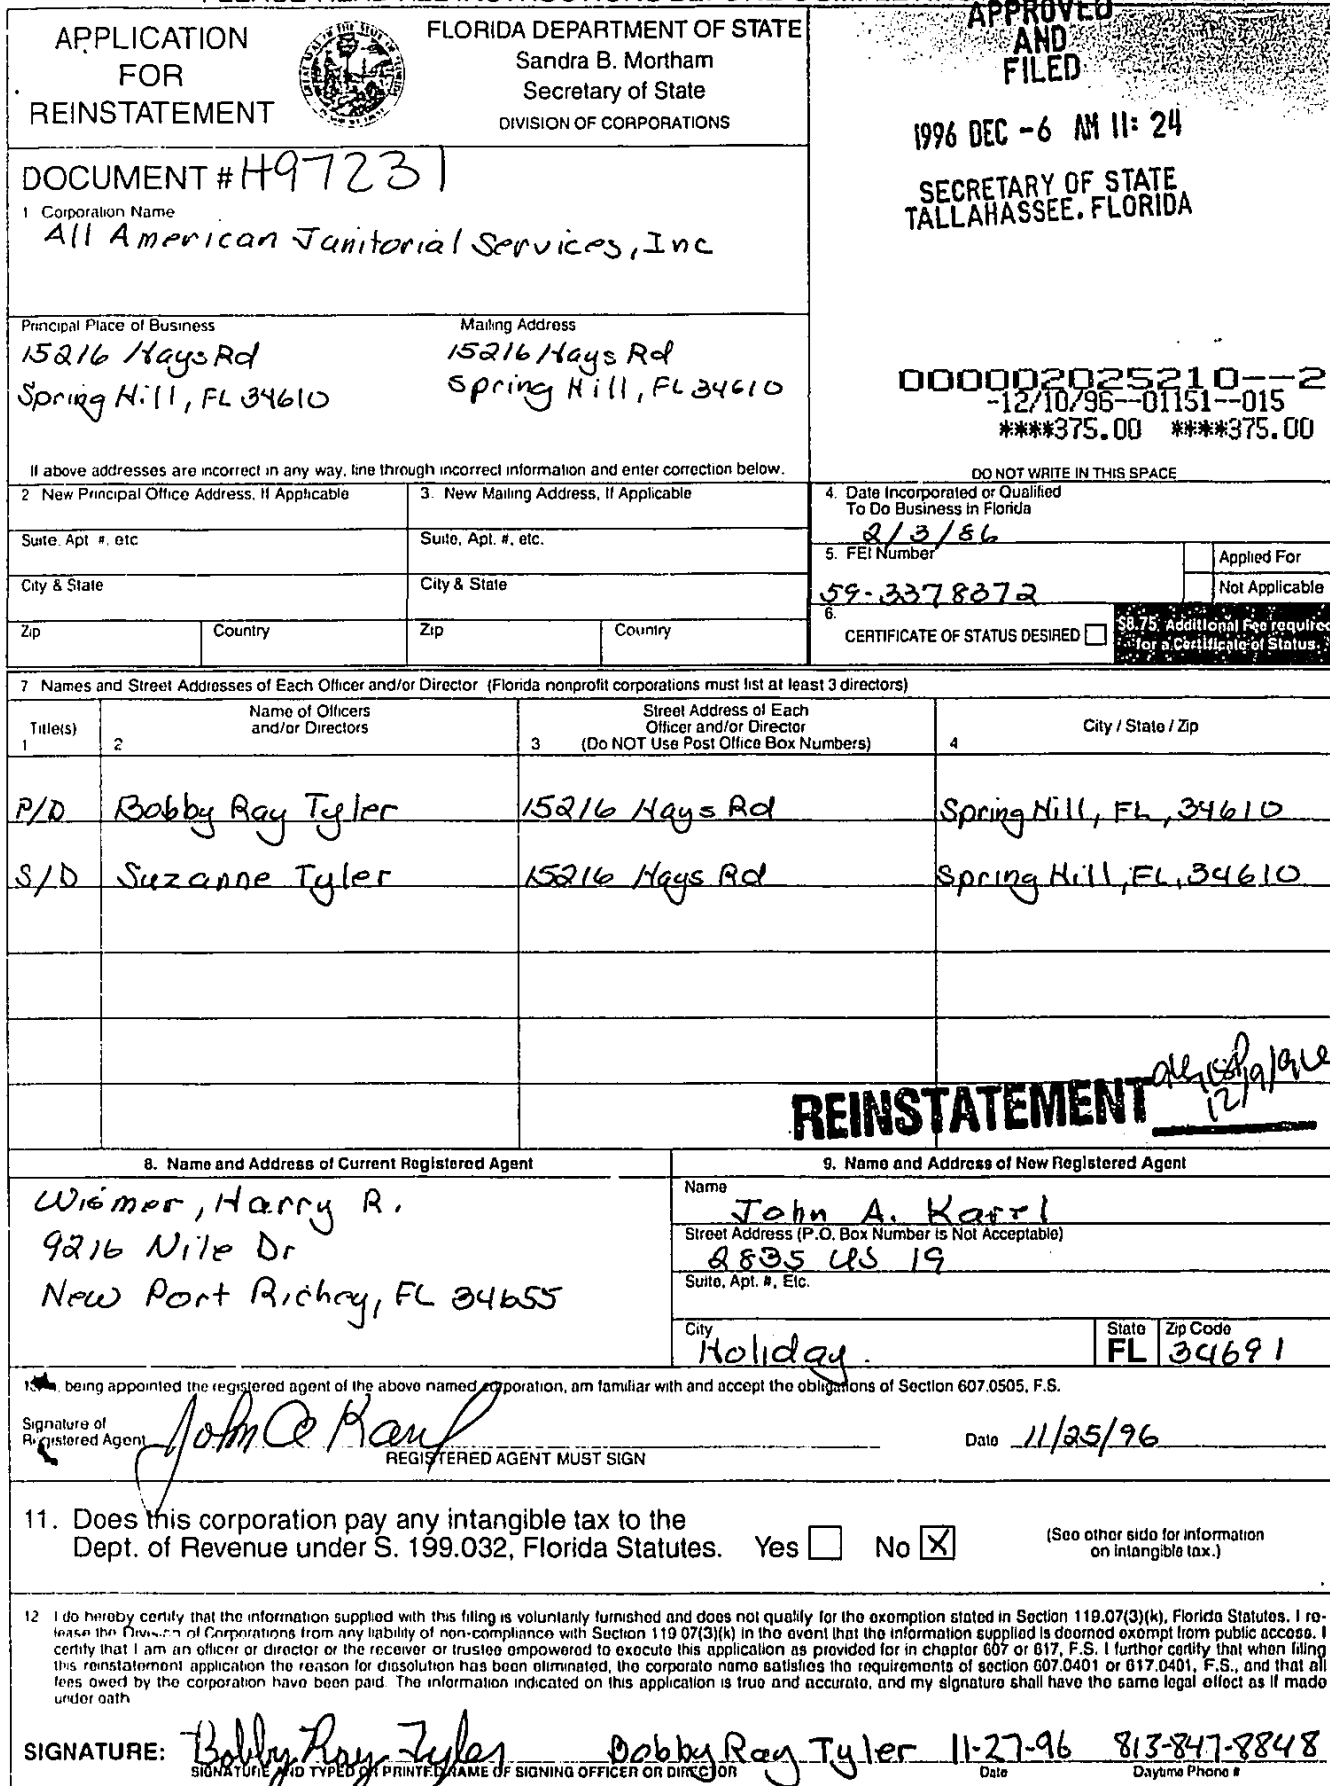 APPLICATION
FOR
REINSTATEMENT
FLORIDA DEPARTMENT OF STATE
Sandra B. Mortham
Secretary of State
DIVISION OF CORPORATIONS
APPROVED
AND
FILED
1996 DEC -6 AM 11: 24
SECRETARY OF STATE
TALLAHASSEE, FLORIDA
DOCUMENT # H97231
1 Corporation Name
All American Janitorial Services, Inc
Principal Place of Business
Mailing Address
15216 Hays Rd
15216 Hays Rd
Spring Hill, FL 34610
Spring Hill, FL 34610
000002025210--2
-12/10/96--01151--015
****375.00 ****375.00
If above addresses are incorrect in any way, line through incorrect information and enter correction below.
DO NOT WRITE IN THIS SPACE
2 New Principal Office Address, If Applicable
3. New Mailing Address, If Applicable
4. Date Incorporated or Qualified
To Do Business in Florida
2/3/86
Suite, Apt #, etc
Suite, Apt. #, etc.
5. FEI Number
59-3378372
Applied For
Not Applicable
City & State
City & State
Zip
Country
Zip
Country
6.
CERTIFICATE OF STATUS DESIRED
$8.75 Additional Fee required
for a Certificate of Status.
7 Names and Street Addresses of Each Officer and/or Director (Florida nonprofit corporations must list at least 3 directors)
Title(s)
1
Name of Officers
and/or Directors
2
Street Address of Each
Officer and/or Director
3 (Do NOT Use Post Office Box Numbers)
City / State / Zip
4
P/D Bobby Ray Tyler 15216 Hays Rd Spring Hill, FL, 34610
S/D Suzanne Tyler 15216 Hays Rd Spring Hill, FL, 34610
REINSTATEMENT
12/9/96
8. Name and Address of Current Registered Agent
Wismer, Harry R.
9216 Nile Dr
New Port Richey, FL 34655
9. Name and Address of New Registered Agent
Name
John A. Karrl
Street Address (P.O. Box Number is Not Acceptable)
2835 US 19
Suite, Apt. #, Etc.
City
Holiday.
State
FL
Zip Code
34691
being appointed the registered agent of the above named corporation, am familiar with and accept the obligations of Section 607.0505, F.S.
Signature of
Registered Agent
REGISTERED AGENT MUST SIGN
Date 11/25/96
11. Does this corporation pay any intangible tax to the
Dept. of Revenue under S. 199.032, Florida Statutes. Yes No X
(See other side for information
on intangible tax.)
12 I do hereby certify that the information supplied with this filing is voluntarily furnished and does not qualify for the exemption stated in Section 119.07(3)(k), Florida Statutes. I re-
lease the Division of Corporations from any liability of non-compliance with Section 119 07(3)(k) in the event that the information supplied is deemed exempt from public access. I
certify that I am an officer or director or the receiver or trustee empowered to execute this application as provided for in chapter 607 or 617, F.S. I further certify that when filing
this reinstatement application the reason for dissolution has been eliminated, the corporate name satisfies the requirements of section 607.0401 or 617.0401, F.S., and that all
fees owed by the corporation have been paid. The information indicated on this application is true and accurate, and my signature shall have the same legal effect as if made
under oath
SIGNATURE: Bobby Ray Tyler Bobby Ray Tyler 11-27-96 813-847-8848
SIGNATURE AND TYPED OR PRINTED NAME OF SIGNING OFFICER OR DIRECTOR
Date
Daytime Phone #